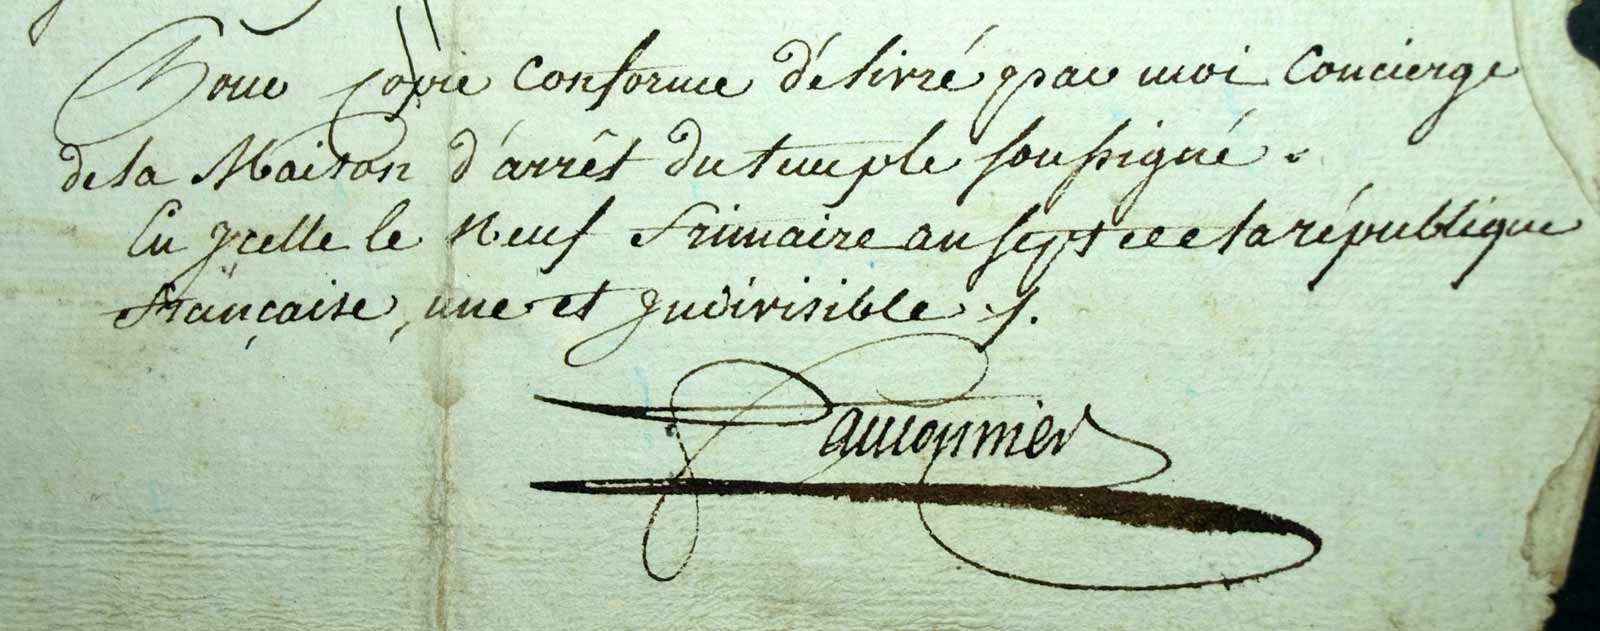 Pour copie conforme délivré par moi Concierge
de la Maison d'arrêt du temple soussigné.
En ycelle le Neuf frimaire an sept de la république
française, une et Indivisible ./.
fauconnier